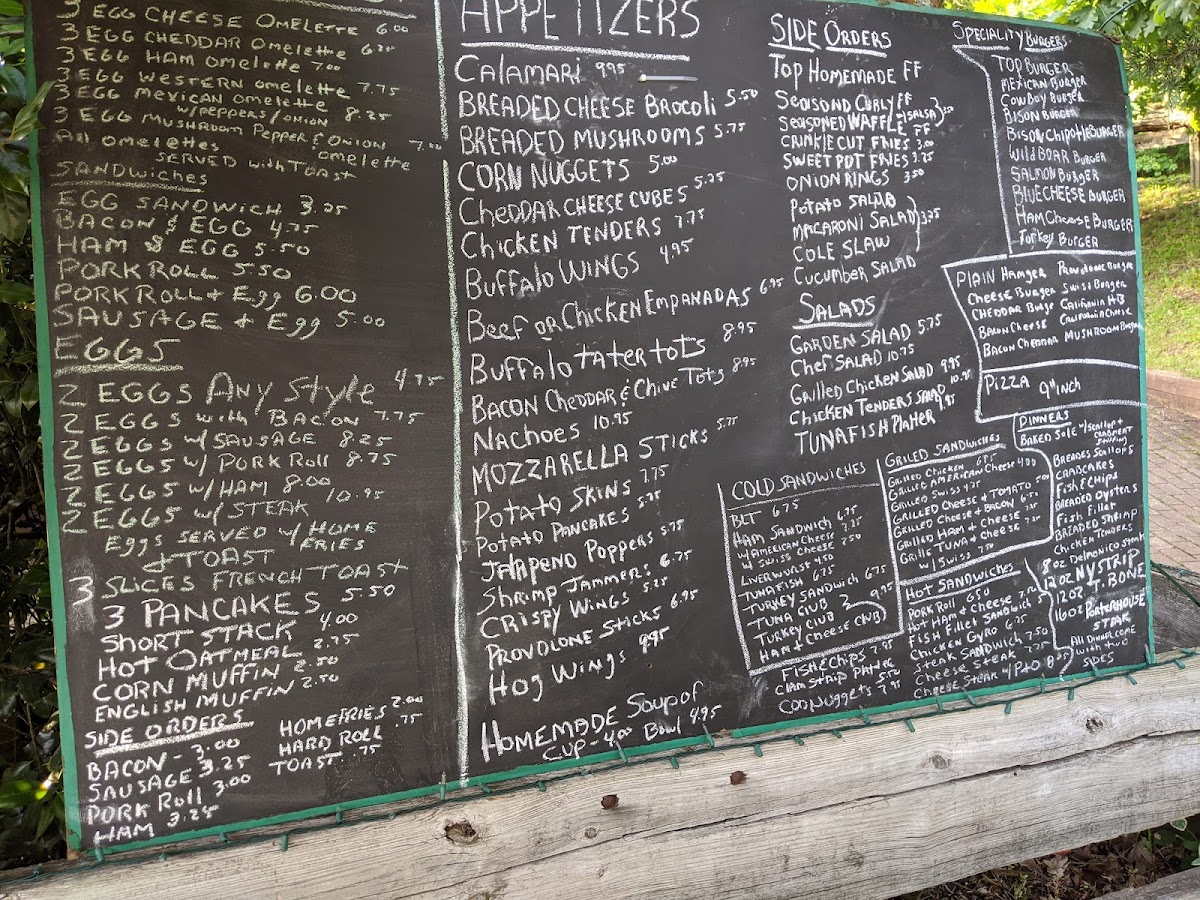 3 EGG CHEESE OMELETTE 6.00
3 EGG CHEDDAR OMELETTE
3 EGG HAM OMELETTE 7.00
3 EGG WESTERN OMELETTE 7.75
3 EGG MEXICAN OMELETTE
W/PEPPERS/ONION 8.25
3 EGG MUSHROOM PEPPER & ONION 7.00
OMELETTE
All OMELETTES
SERVED WITH TOAST
SANDWICHES
EGG SANDWICH 3.25
BACON & EGG 4.75
HAM & EGG 5.50
PORK ROLL 5.50
PORK ROLL + Egg 6.00
SAUSAGE + Egg 5.00
EGGS
2 EGGS Any Style 4.75
2 EGGS with BACON 7.75
2 EGGS W/ SAUSAGE 8.25
2 EGGS W/ PORK Roll 8.75
2 EGGS W/ HAM 8.00
2 EGGS W/ STEAK 10.95
EGGS SERVED W/ HOME
FRIES
& TOAST
3 SLICES FRENCH TOAST
3 PANCAKES 5.50
SHORT STACK 4.00
HOT OATMEAL 2.75
CORN MUFFIN 2.50
ENGLISH MUFFIN 2.50
SIDE ORDERS
BACON - 3.00
SAUSAGE 3.25
PORK Roll 3.00
HAM 3.25
HOMEFRIES 2.00
HARD ROLL .75
TOAST .75
APPETIZERS
CALAMARI 9.95
BREADED CHEESE BROCOLI 5.50
BREADED MUSHROOMS 5.75
CORN NUGGETS 5.00
CHEDDAR CHEESE CUBES 5.25
CHICKEN TENDERS 7.75
BUFFALO WINGS 4.95
BEEF OR CHICKEN EMPANADAS 6.95
BUFFALO TATER TOTS 8.95
BACON CHEDDAR & CHIVE TOTS 8.95
NACHOES 10.95
MOZZARELLA STICKS 5.75
POTATO SKINS 7.75
POTATO PANCAKES 5.25
JALAPENO POPPERS 5.75
SHRIMP JAMMERS 6.75
CRISPY WINGS 5.25
PROVOLONE STICKS 6.95
HOG WINGS 9.95
HOMEMADE SOUP OF
CUP - 4.00 Bowl 4.95
SIDE ORDERS
TOP HOMEMADE FF
SEASOND CURLY FF
SEASONED WAFFLE FF
CRINKLE CUT FRIES 3.00
SWEET POT FRIES 3.75
ONION RINGS 3.50
POTATO SALAD
MACARONI SALAD 3.25
COLE SLAW
CUCUMBER SALAD
SALADS
GARDEN SALAD 5.75
CHEF SALAD 10.75
GRILLED CHICKEN SALAD 9.95
CHICKEN TENDERS SALAD 10.95
TUNAFISH PLATTER 9.95
COLD SANDWICHES
BLT 6.75
HAM SANDWICH 6.75
W/ AMERICAN CHEESE 7.25
W/ SWISS CHEESE 7.50
LIVERWURST 4.50
TUNA FISH 6.75
TURKEY SANDWICH 6.75
TUNA CLUB
TURKEY CLUB 9.95
HAM & CHEESE CLUB
FISH & CHIPS 7.95
CLAM STRIP PLATTER
COD NUGGETS 7.95
SPECIALITY BURGERS
TOP BURGER
MEXICAN BURGER
COWBOY BURGER
BISON BURGER
BISON CHIPOTLE BURGER
WILD BOAR BURGER
SALMON BURGER
BLUE CHEESE BURGER
HAM CHEESE BURGER
TURKEY BURGER
PLAIN
CHEESE BURGER
CHEDDAR
BACON CHEESE
BACON CHEDDAR
PROVOLONE BURGER
SWISS BURGER
CALIFORNIA HB
CALIFORNIA CHEESE
MUSHROOM
PIZZA 9"INCH
GRILED SANDWICHES
GRILLED CHICKEN 6.75
GRILLED AMERICAN CHEESE 4.00
GRILLED SWISS 4.25
GRILLED CHEESE & TOMATO
GRILLED CHEESE & BACON 6.50
GRILLED HAM & CHEESE
GRILLED TUNA & CHEESE
W/ SWISS 7.50
HOT SANDWICHES
PORK ROLL 6.50
HOT HAM & CHEESE
FISH FILLET SANDWICH
CHICKEN GYRO 6.75
STEAK SANDWICH 7.50
CHEESE STEAK 7.75
CHEESE STEAK W/
DINNERS
BAKED SOLE W/ SCALLOP &
CRABMEAT
STUFFING
BREADED SCALLOPS
CRABCAKES
FISH & CHIPS
BREADED OYSTERS
FISH FILLET
BREADED SHRIMP
CHICKEN TENDERS
8 OZ DELMONICO STEAK
12 OZ NY STRIP
12 OZ T. BONE
16 OZ PORTERHOUSE
STEAK
All DINNER COME
WITH TWO
SIDES